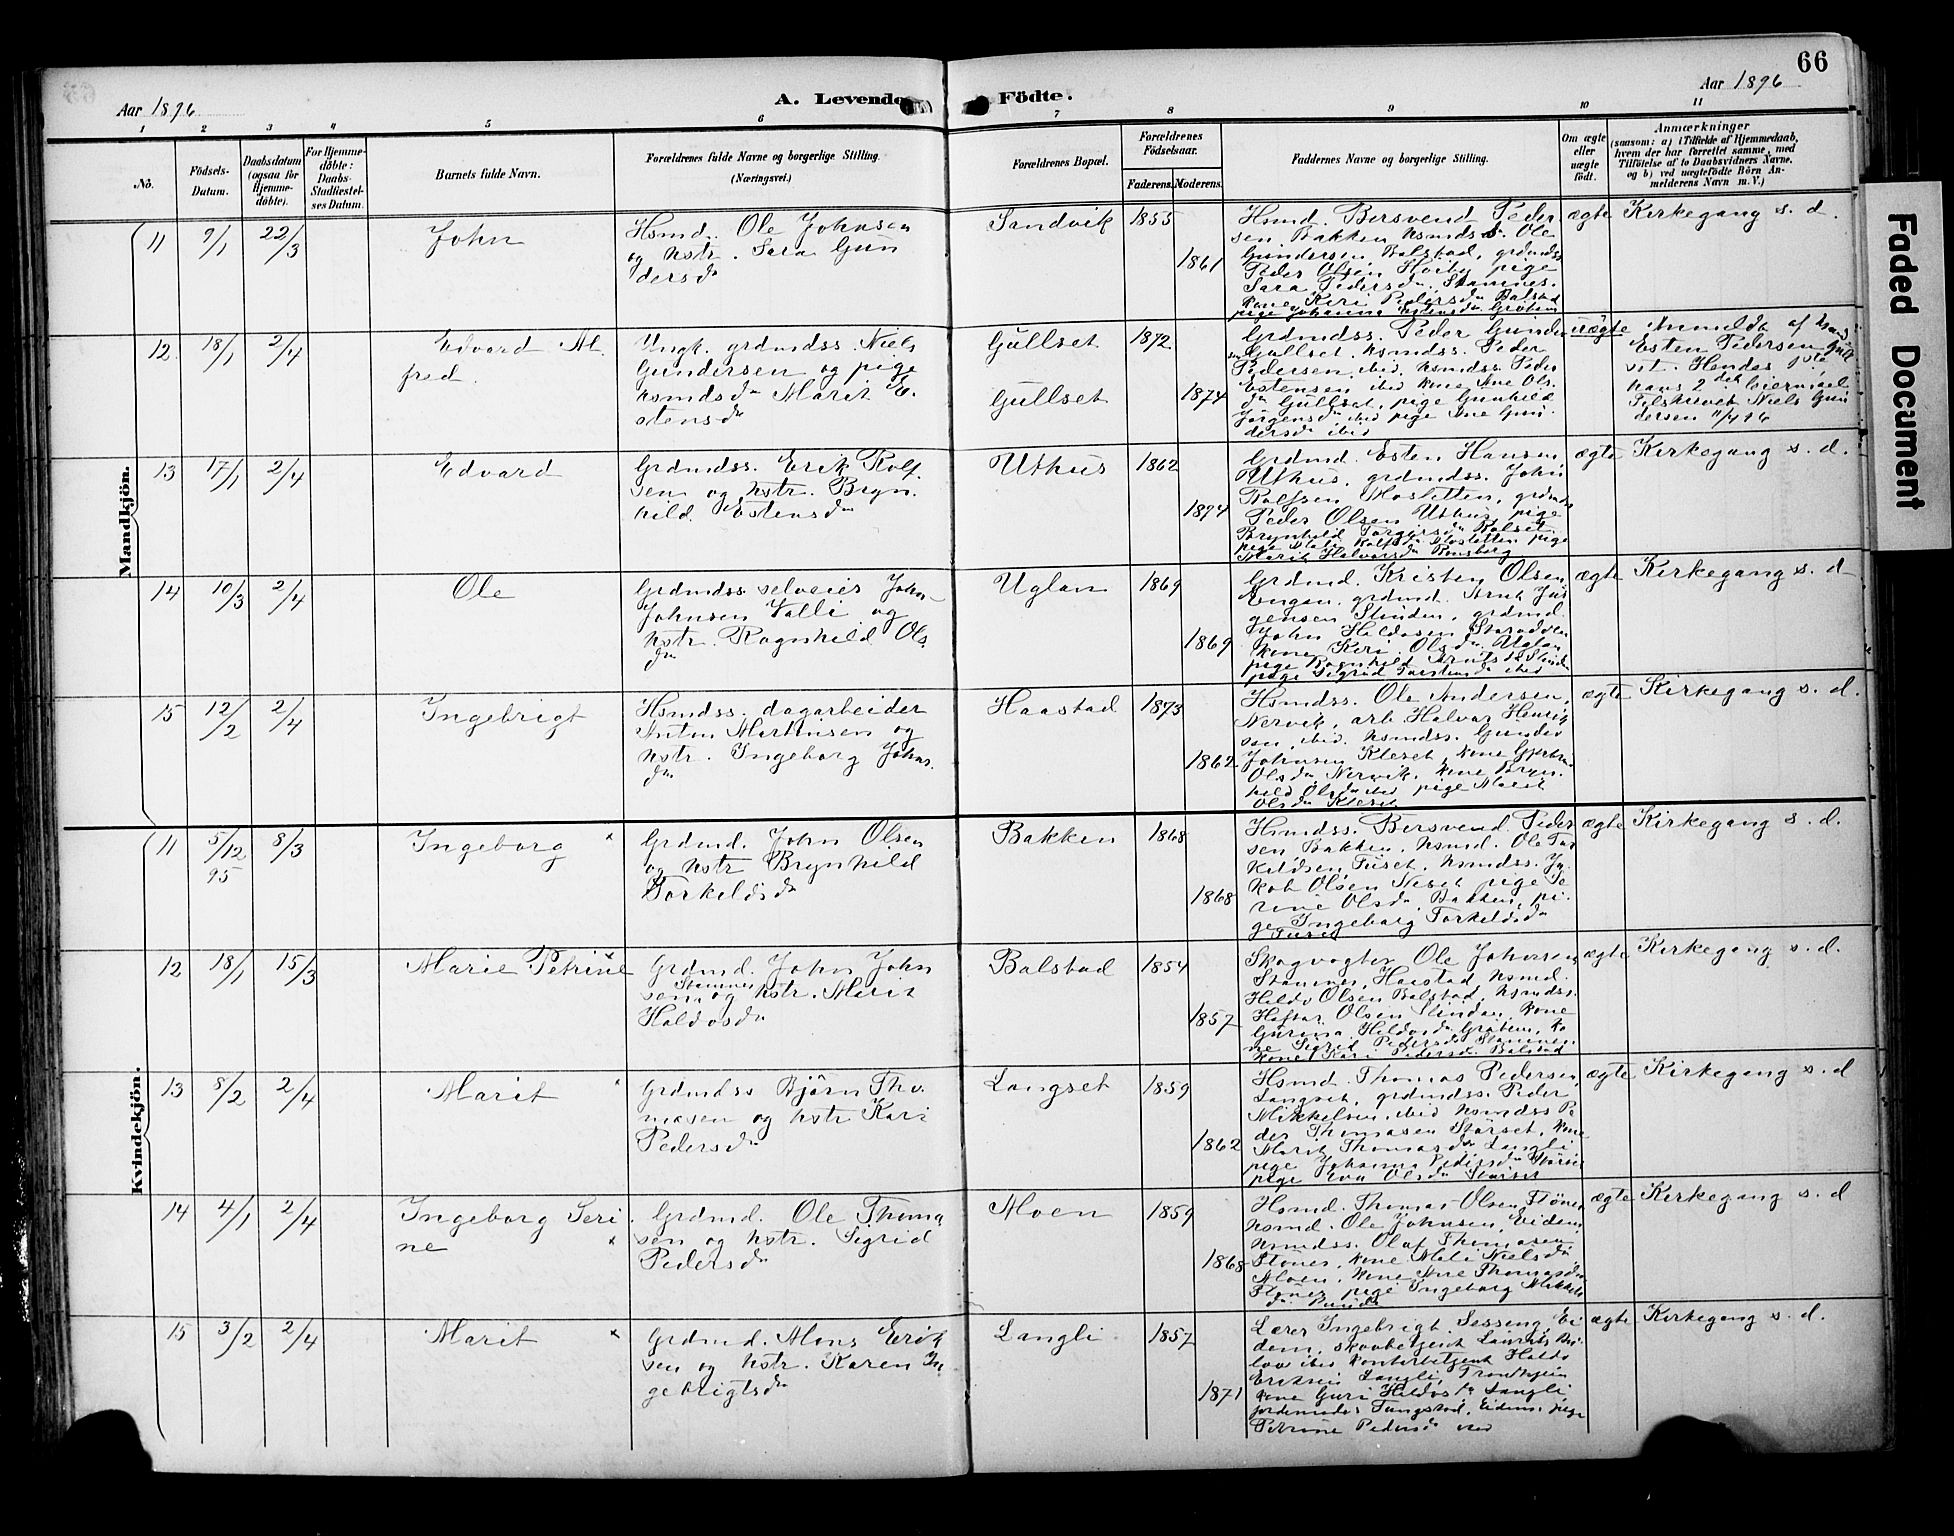 66
Aar 1896
A. Levende Födte.
Aar 1896
1 2 3 4 5 6 7 8 9 10 11
No.
Födsels-
Datum.
Daabsdatum
(ogsaa för
Hjemme-
döbte).
For Hjemme-
döbte:
Daabs-
Stadfæstel-
ses Datum.
Barnets fulde Navn.
Forældrenes fulde Navne og borgerlige Stilling.
(Næringsvei.)
Forældrenes Bopæl.
Forældrenes
Födselsaar.
Faderens. Moderens.
Faddernes Navne og borgerlige Stilling.
Om ægte
eller
uægte
födt.
Anmærkninger
(saasom: a) i Tilfælde af Hjemmedaab,
hvem der har forrettet samme, med
Tilföielse af to Daabsvidners Navne,
og b) ved uægtefödte Börn An-
melderens Navn m. V.)
Faded Document
Mandkjön.
11 9/1 22/3 John
Hsmd. Ole Johnsen
og hstr. Sara Gun
dersdn
Sandvik 1855 1861
Hsmd. Bersvend Peder
sen Bakken hsmdss. Ole
Gundersen Balstad, grdmdss
Peder Olsen Hoiby pige
Sara Pedersdn Stamnes.
kone Keri Pedersdn Balstad
pige Johanna Estensdn Gröten
ægte Kirkegang s. d.
12 18/1 2/4 Edvard Al
fred.
Ungk. grdmdss. Niels
Gundersen og pige
hsmdsdn Marit E.
stensdn
Gullset 1872
Gullset 1874
Grdmdss. Peder Gunder
sen Gullset. hsmdss. Peder
Pedersen ibid. hsmdss. Peder
Estensen ibid kone Ane Ols.
dn Gullset, pige Gunhild
Jörgensdn ibid pige Ane Gun
dersdn ibid
uægte Anmeldt af hsmd
Esten Pedersen Gull
set. Hendes 1ste
hans 2det Leiermaal
Tilskrevet Niels Gun
dersen 11/4 96
13 17/1 2/4 Edvard
Grdmdss. Erik Rolf
sen og hstr. Bryn.
hild Estensdn
Uthus 1862 1874
Grdmd. Esten Hansen
Uthus, grdmdss. John
Rolfsen Mosletten, grdmdss
Peder Olsen Uthus pige
Brynhild Torgersdn Rolset
pige Mali Rolfsdn Mosletten pige
Marit Halvorsdn Rønsberg
ægte Kirkegang s. d.
14 10/3 2/4 Ole
Grdmdss. selveier John
Johnsen Valli og
hstr. Ragnhild Ols
dn
Uglan 1869 1869
Grdmd. Kristen Olsen
Engan, grdmd. Arnt Jör
gensen Slinden, grdmd.
John Haldosen
kone Keri Olsdn Uglan
pige Ragnhild Arntsdn Slinden
pige Sigrid ibid
ægte Kirkegang s. d
15 12/2 2/4 Ingebrigt
Hsmdss. dagarbeider
Anton Martinsen og
hstr. Ingeborg Johns.
dn
Haastad 1873 1862
Hsmdss. Ole Andersen,
Nervik, arb. Halvar Henrik
sen, ibid. hsmdss. Gunder
Johnsen Kleset kone Gjertrud
Olsdn Nervik. kone Bryn.
hild Olsdn ibid pige Marit
Olsdn Kleset
ægte Kirkegang s. d.
Kvindekjön.
11 5/12 95 8/3 Ingeborg x
Grdmd. John Olsen
og hstr Brynhild
Torkeldsdn
Bakken 1868 1868
Hsmdss. Bersvend Peder
sen Bakken, hsmd. Ole Tor
kildsen Tuset, hsmdss. Ja.
kob Olsen Neset pige Se
rine Olsdn Bakken, pi.
ge Ingeborg Torkeldsdn
Tuset
ægte Kirkegang s. d.
12 18/1 15/3 Marie Petrine x
Grdmd. John John
sen Stamnes og hstr. Marit
Haldosdn
Balstad 1854 1857
Skogvogter Ole Johnsen
Stamnes, Haastad hsmd.
Haldo Olsen Balstad, hsmdss.
Haftor Olsen Slindan, kone
Gurina Haldosdn Gröten, ko
ne Sigrid Pedersdn Stamnes.
kone Kari Pedersdn Balstad
ægte Kirkegang s. d.
13 8/2 2/4 Marit x
Grdmdss Björn Tho.
masen og hstr Kari
Pedersdn
Langset 1859 1862
Hsmd. Thomas Pedersen
Langset, grdmdss. Peder
Mikkelsen, ibid hsmdss Pe
der Thomasen Störset, kone
Marit Thomasdn Langli
pige Johanna Pedersdn Störset
pige Eva Olsdn Störset
ægte Kirkegang s. d
14 4/1 2/4 Ingeborg Seri.
ne x
Grdmd. Ole Thoma
sen og hstr. Sigrid
Pedersdn
Moen 1859 1868
Hsmd. Thomas Olsen Flönes
hsmd. Ole Johnsen, Eidem,
hsmdss. Olaf Thomasen,
Flönes, kone Mali Nielsdn
Moen, kone Ane Thomasdn
Flönes pige Ingeborg Mikkels
dn
ægte Kirkegang s. d
15 3/2 2/4 Marit x
Grdmd. Mons Erik
sen og hstr. Karen In
gebrigtsdn
Langli 1857 1871
Lærer Ingebrigt Sesseng Ei
dem, skovbetjent Laurits Bu
laas ibid kontorbetjent Haldo
Eriksen Langli, Trondhjem
kone Guri Haldosdn Langli
jordemoder Tungstad, Eidem, pige
Petrine Pedersdn ibid
ægte Kirkegang s. d.